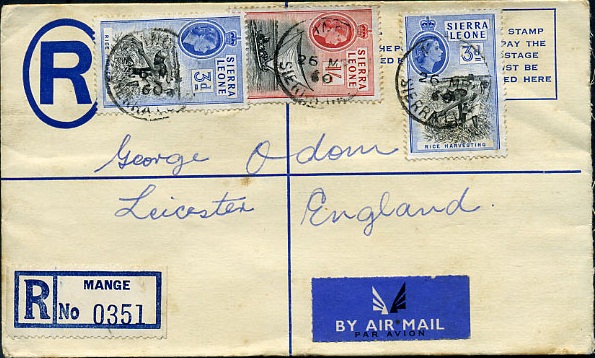 R
RICE
3d
SIERRA
LEONE
1/-
SIERRA
LEONE
SIERRA
LEONE
3d
RICE HARVESTING
26 M
60
SIERRA
STAMP
PAY THE
STAGE
ST BE
ED HERE
George Odom
Leicester England
MANGE
R No 0351
BY AIR MAIL
PAR AVION